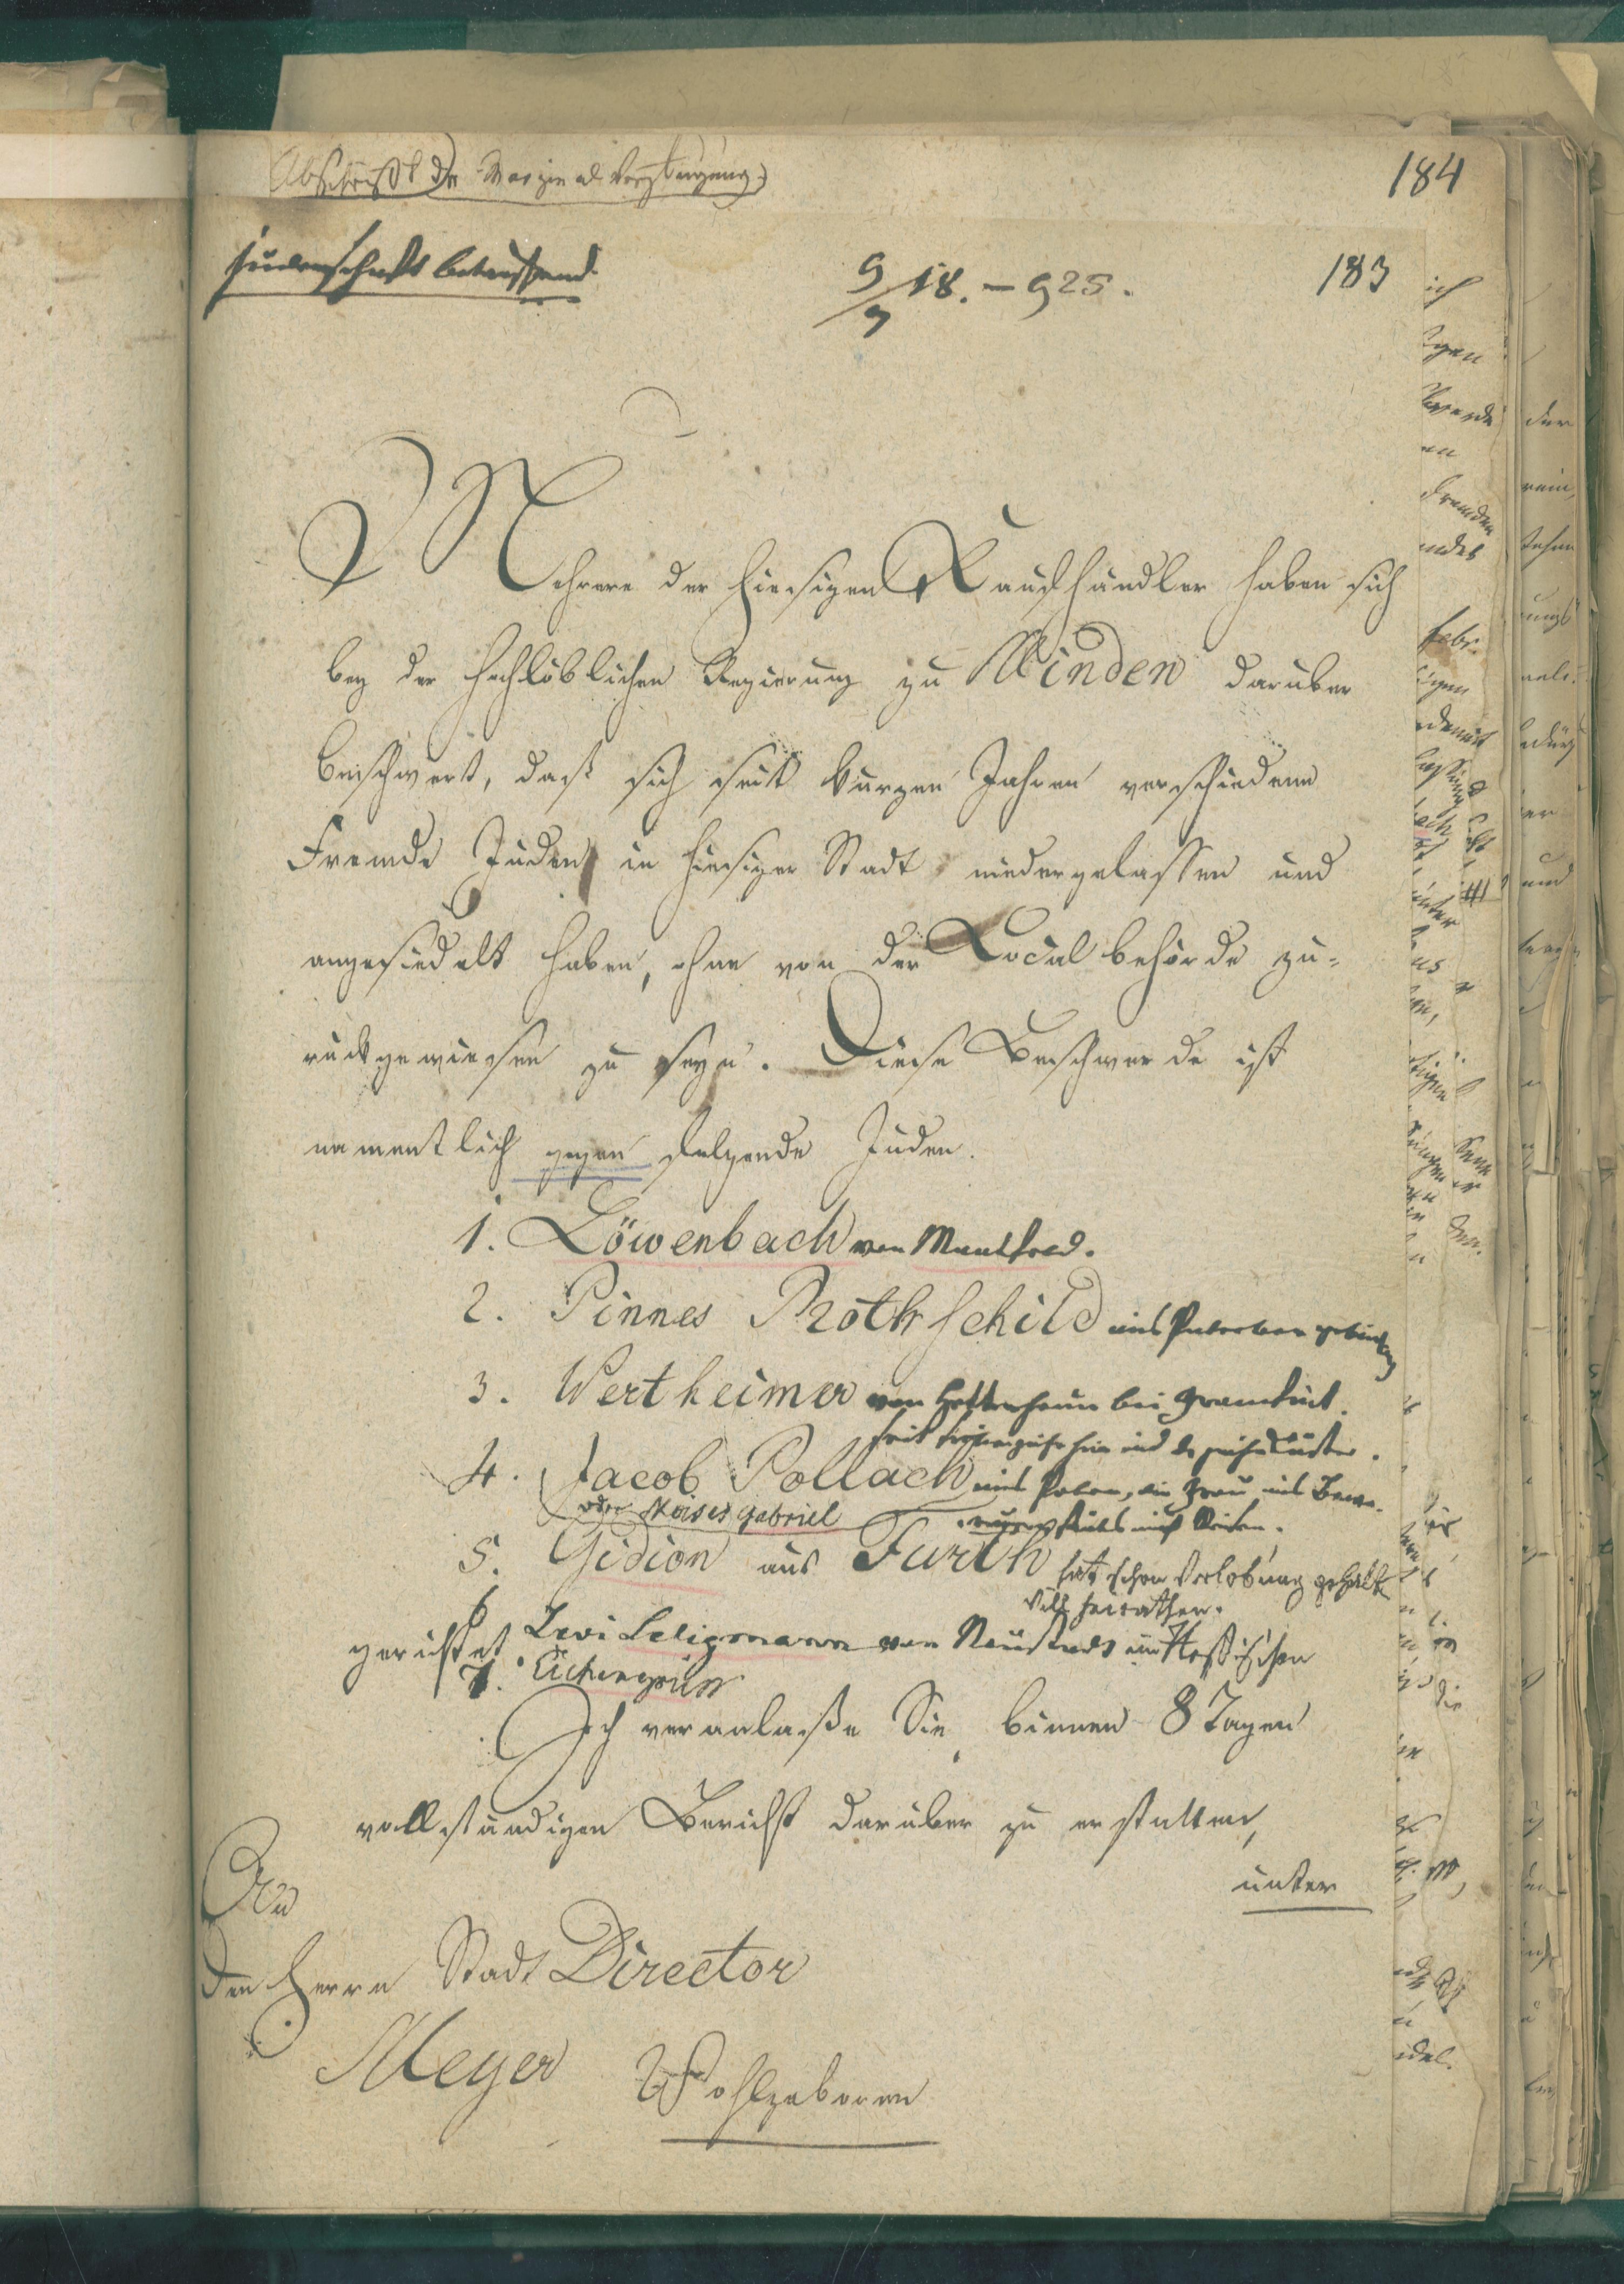 Abschrift der Marginal Verfügung.
184
Judenschaft betreffend.
9/7 18. – 925.
183
Mehrere der hiesigen Kaufhändler haben sich
bey der hochlöblichen Regierung zu Minden darüber
beschwert, daß sich seit kurzen Jahren verschiedene
Fremde Juden in hiesiger Stadt niedergelassen und
angesiedelt haben, ohne von der Local behörde zu-
rückgewiesen zu seyn. Diese Beschwerde ist
namentlich gegen folgende Juden.
1. Löwenbach von
2. Pinnes Rothschild aus
3. Wertheimer von bei
seit hier und
4. Jacob Pollach aus Polen, die Frau aus
oder Moises Gabriel
5. Gidion aus Fürth hat schon Verlobung gehalt
will heirathen.
6 Levi Seligmann von Neustadt im Hessischen
gerichtet
7. Eichengrün
Ich veranlaße Sie, binnen 8 Tagen
vollständigen Bericht darüber zu erstatten,
unter
An
den Herrn Stadt Director
Meyer Wohlgeboren